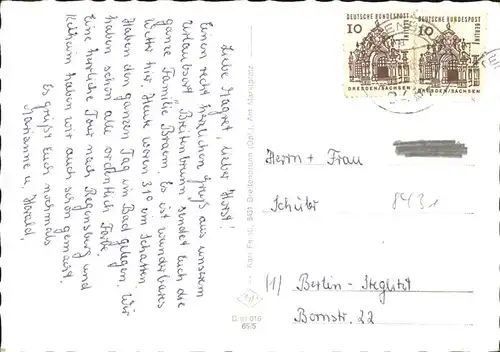 Liebe Magret, lieber Horst!
Einen recht herzlichen Gruß aus unserem
Urlaubsort Breitenbrunn sendet Euch die
ganze Familie Braun. Es ist wunderbares
Wetter hier. Heute waren 31° im Schatten.
Haben den ganzen Tag im Bad gelegen. Wir
haben schon alle ordentlich Farbe.
Eine herrliche Tour nach Regensburg und
Kelheim haben wir auch schon gemacht.
Es grüßt Euch nochmals
Marianne u. Harald.
DEUTSCHE BUNDESPOST
BERLIN
10
DRESDEN/SACHSEN
DEUTSCHE BUNDESPOST
BERLIN
10
DRESDEN/SACHSEN
Herrn + Frau
Schüler
8431
(1) Berlin - Steglitz
Bornstr. 22
Breitenbrunn (Opf.), Am Marktplatz
65/5